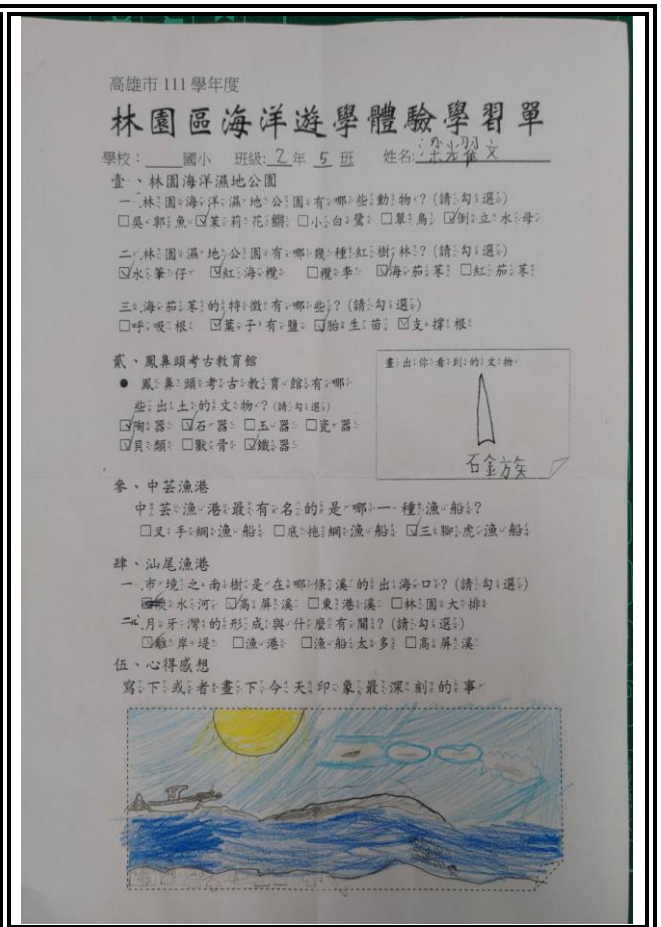 高雄市 111 學年度
林園區海洋遊學體驗學習單
學校：____國小 班級：2年 5 班 姓名：梁光翟文
壹、林園海洋濕地公園
一、林園海洋濕地公園有哪些動物？(請勾選)
□吳郭魚 ☑茉莉花鱂 □小白鷺 □翠鳥 ☑倒立水母
二、林園濕地公園有哪幾種紅樹林？(請勾選)
☑水筆仔 ☑紅海欖 □欖李 ☑海茄苳 □紅茄苳
三、海茄苳的特徵有哪些？(請勾選)
□呼吸根 ☑葉子有鹽 ☑胎生苗 ☑支撐根
貳、鳳鼻頭考古教育館
● 鳳鼻頭考古教育館有哪
些出土的文物？(請勾選)
☑陶器 ☑石器 □玉器 □瓷器
☑貝類 □獸骨 ☑鐵器
畫出你看到的文物
石金族
參、中芸漁港
中芸漁港最有名的是哪一種漁船？
□叉手網漁船 □底拖網漁船 ☑三腳虎漁船
肆、汕尾漁港
一、市境之南樹是在哪條溪的出海口？(請勾選)
淡水河 ☑高屏溪 □東港溪 □林園大排
二、月牙灣的形成與什麼有關？(請勾選)
☑離岸堤 □漁港 □漁船太多 □高屏溪
伍、心得感想
寫下或者畫下今天印象最深刻的事